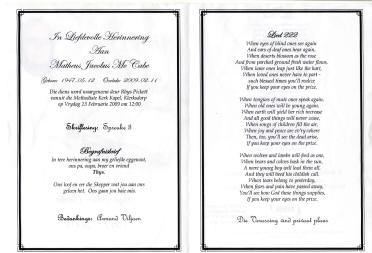 In Liefdevolle Herinnering
Aan
Matheus Jacobus Mc Cabe
Gebore: 1947.05.12 Oorlede: 2009.02.11
Die diens word waargeneem deur Rhys Pickett
vanuit die Methodiste Kerk Kapel, Klerksdorp
op Vrydag 13 Februarie 2009 om 12:00
Skriflesing: Spreuke 3
Begrafnisbrief
In tere herinnering aan my geliefde eggenoot,
ons pa, oupa, broer en vriend
Thys.
Ons loof en eer die Skepper wat jou aan ons
geleen het. Ons gaan jou baie mis.
Bedankings: Armand Viljoen
Lied 222
When eyes of blind ones see again
And ears of deaf ones hear again,
When deserts blossom as the rose
And from parched ground fresh water flows,
When lame ones leap just like the hart,
When loved ones never have to part -
such blessed times you'll realize
If you keep your eyes on the prize.
When tongues of mute ones speak again,
When old ones will be young again,
When earth will yield her rich increase
And all good things will never cease,
When songs of children fill the air,
When joy and peace are ev'rywhere
Then, too, you'll see the dead arise.
If you keep your eyes on the prize.
When wolves and lambs will feed as one,
When bears and calves bask in the sun,
A mere young boy will lead them all,
And they will heed his childish call.
When tears belong to yesterday,
When fears and pain have passed away,
You'll see how God these things supplies,
If you keep your eyes on the prize.
Die Verassing vind privaat plaas